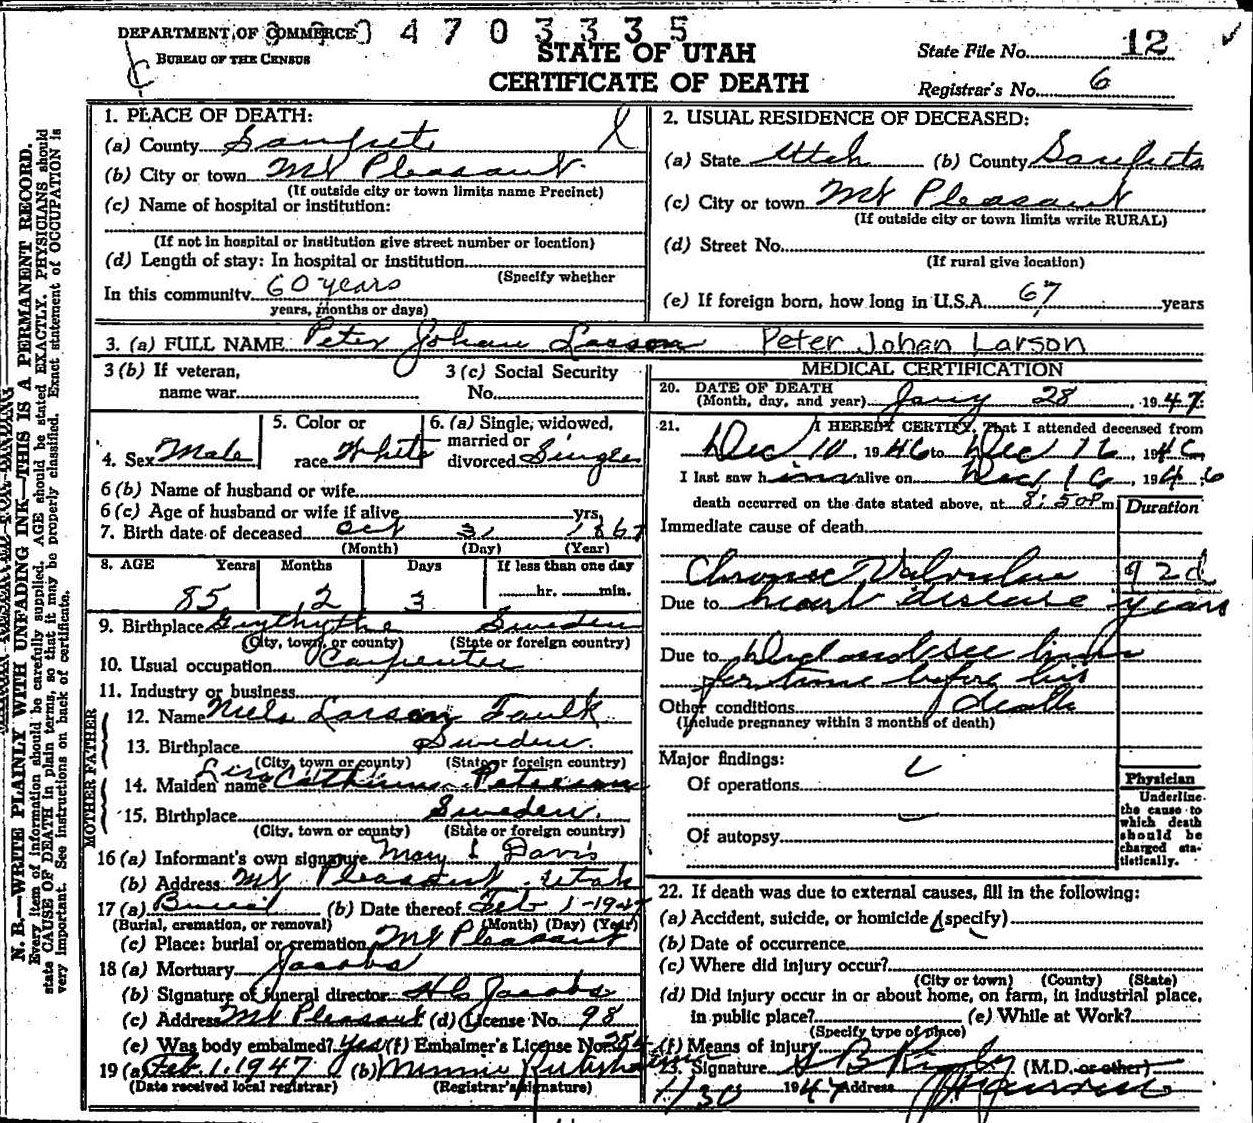 DEPARTMENT OF COMMERCE
0 4 7 0 3 3 3 5
BUREAU OF THE CENSUS
STATE OF UTAH
CERTIFICATE OF DEATH
State File No. 12
Registrar's No. 6
N. B.—WRITE PLAINLY WITH UNFADING INK—THIS IS A PERMANENT RECORD.
Every item of information should be carefully supplied. AGE should be stated EXACTLY. PHYSICIANS should
state CAUSE OF DEATH in plain terms, so that it may be properly classified. Exact statement of OCCUPATION is
very important. See instructions on back of certificate.
1. PLACE OF DEATH:
(a) County Sanpete
(b) City or town Mt Pleasant
(If outside city or town limits name Precinct)
(c) Name of hospital or institution:
(If not in hospital or institution give street number or location)
(d) Length of stay: In hospital or institution
(Specify whether
In this community 60 years
years, months or days)
2. USUAL RESIDENCE OF DECEASED:
(a) State Utah (b) County Sanpete
(c) City or town Mt Pleasant
(If outside city or town limits write RURAL)
(d) Street No.
(If rural give location)
(e) If foreign born, how long in U.S.A. 67 years
3. (a) FULL NAME Peter Johan Larson Peter Johan Larson
3 (b) If veteran,
name war
3 (c) Social Security
No.
4. Sex Male
5. Color or
race White
6. (a) Single, widowed,
married or
divorced Single
6 (b) Name of husband or wife
6 (c) Age of husband or wife if alive yrs.
7. Birth date of deceased Oct 31 1861
(Month) (Day) (Year)
8. AGE Years Months Days If less than one day
85 2 3 hr. min.
9. Birthplace Sweden
(City, town, or county) (State or foreign country)
10. Usual occupation Carpenter
11. Industry or business
FATHER
12. Name Niels Larson Faulk
13. Birthplace Sweden
(City, town or county) (State or foreign country)
MOTHER
14. Maiden name Lisa Catherine Peterson
15. Birthplace Sweden
(City, town or county) (State or foreign country)
16 (a) Informant's own signature Mary L Davis
(b) Address Mt Pleasant Utah
17 (a) Burial (b) Date thereof Feb 1-1947
(Burial, cremation, or removal) (Month) (Day) (Year)
(c) Place: burial or cremation Mt Pleasant
18 (a) Mortuary Jacobs
(b) Signature of funeral director H C Jacobs
(c) Address Mt Pleasant (d) License No. 98
(e) Was body embalmed? Yes (f) Embalmer's License No. 254
19 (a) Feb. 1, 1947 (b) Minnie
(Date received local registrar) (Registrar's signature)
MEDICAL CERTIFICATION
20. DATE OF DEATH
(Month, day, and year) Jany 28, 1947
21. I HEREBY CERTIFY, That I attended deceased from
Dec 10, 1946 to Dec 16, 1946
I last saw him alive on Dec 16, 1946
death occurred on the date stated above, at 8:50P m
Duration
Immediate cause of death
Chronic Valvular 92d
Due to heart disease years
Due to Did not see him
for time before his
Other conditions death
(Include pregnancy within 3 months of death)
Major findings:
Of operations
Of autopsy
Physician
Underline
the cause to
which death
should be
charged sta-
tistically.
22. If death was due to external causes, fill in the following:
(a) Accident, suicide, or homicide (specify)
(b) Date of occurrence
(c) Where did injury occur?
(City or town) (County) (State)
(d) Did injury occur in or about home, on farm, in industrial place,
in public place? (e) While at Work?
(Specify type of place)
(f) Means of injury
23. Signature (M.D. or other)
1/30 1947 Address